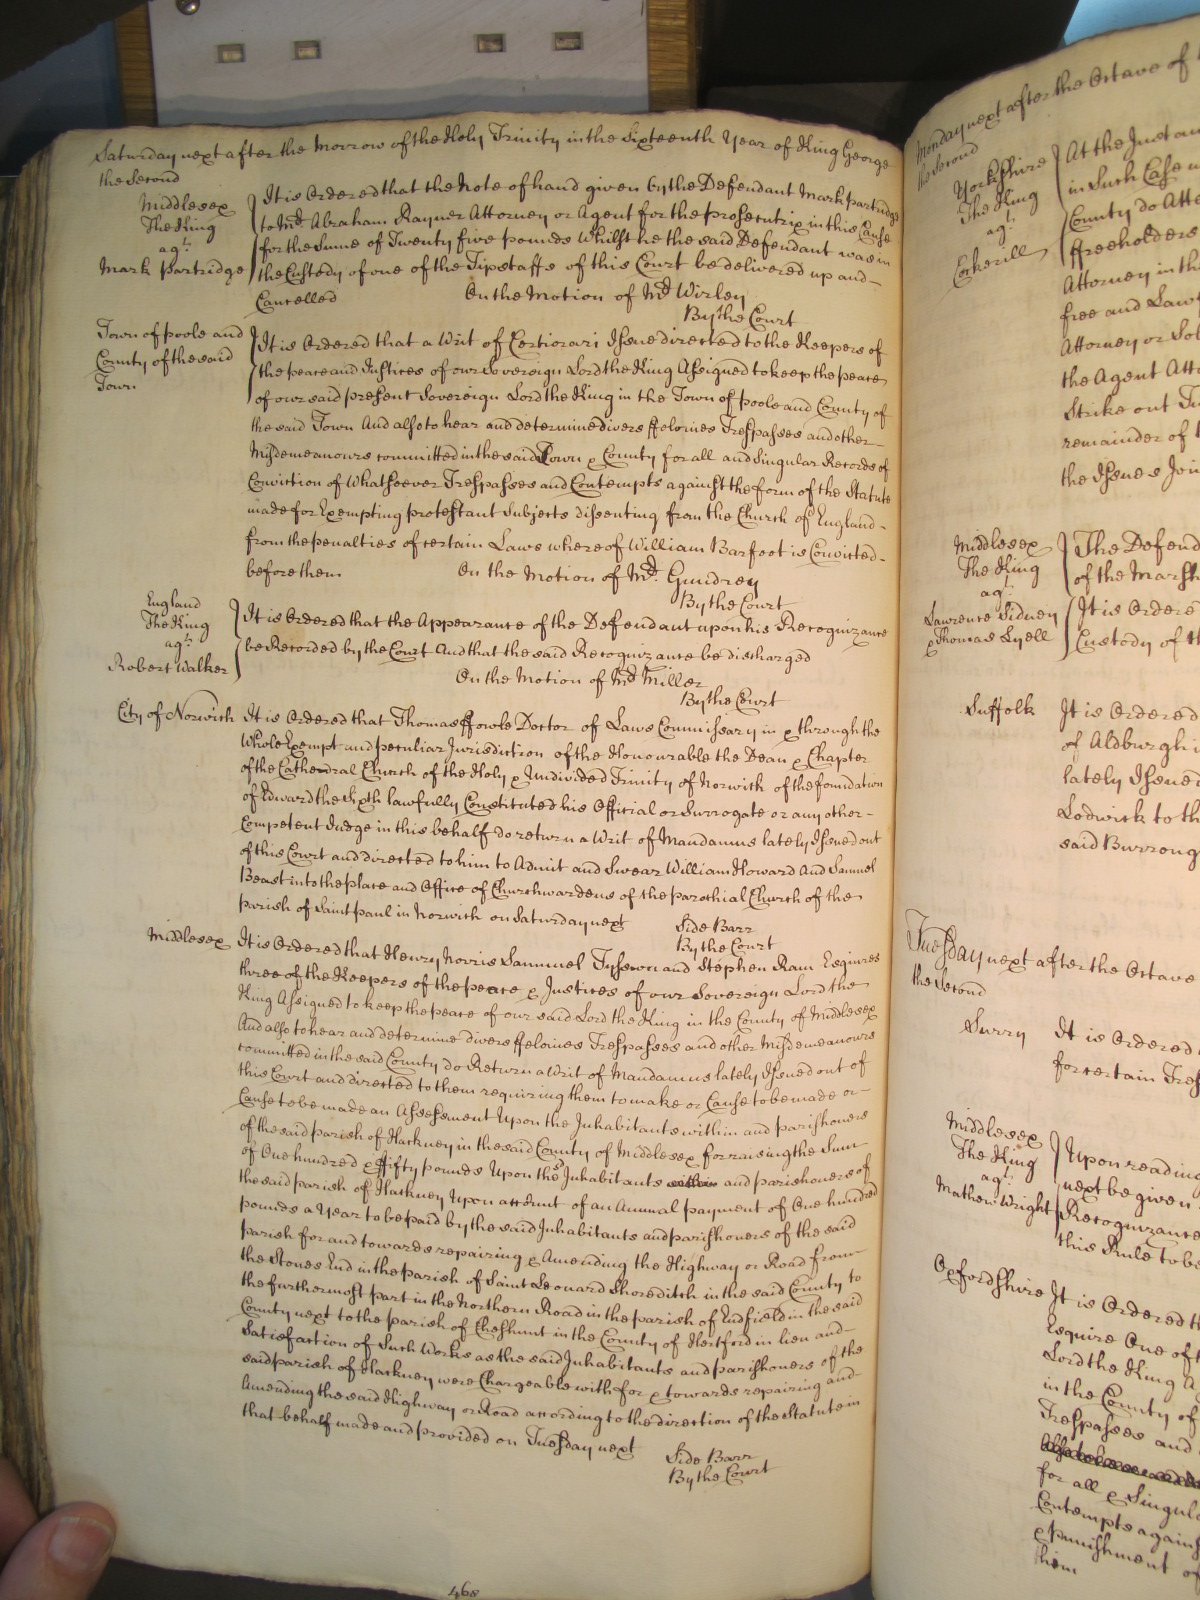 Saturday next after the Morrow of the Holy Trinity in the Sixteenth Year of King George
the Second
Middlesex
The King
agt.
Mark Partridge
It is Ordered that the Note of hand given by the Defendant Mark Partridge
to Mr. Abraham Rayner Attorney or Agent for the Prosecutrix in this Cause
for the Sume of Twenty five pounds Whilst he the said Defendant was in
the Custody of one of the Tipstaffs of this Court be delivered up and
Cancelled On the Motion of Mr. Wirley
By the Court
Town of Poole and
County of the said
Town
It is Ordered that a Writ of Certiorari Issue directed to the Keepers of
the peace and Justices of our Sovereign Lord the King Assigned to keep the peace
of our said present Sovereign Lord the King in the Town of Poole and County of
the said Town And also to hear and determine divers ffelonies Trespasses and other
Misdemeanours committed in the said Town & County for all and Singular Records of
Conviction of Whatsoever Trespasses and Contempts against the form of the Statute
made for Exempting protestant Subjects dissenting from the Church of England
from the penalties of certain Laws whereof William Barfoot is Convicted
before them On the Motion of Mr. Gundrey
By the Court
England
The King
agt.
Robert Walker
It is Ordered that the Appearance of the Defendant upon his Recognizance
be Recorded by the Court And that the said Recognizance be discharged
On the Motion of Mr. Miller
By the Court
City of Norwich It is Ordered that Thomas ffowle Doctor of Laws Commissary in & through the
Whole Exempt and peculiar Jurisdiction of the Honourable the Dean & Chapter
of the Cathedral Church of the Holy & Undivided Trinity of Norwich of the foundation
of Edward the Sixth lawfully Constituted his Official or Surrogate or any other
Competent Judge in this behalf do return a Writ of Mandamus lately Issued out
of this Court and directed to him to Admit and Swear William Howard And Samuel
Beast into the place and Office of Churchwardens of the parochial Church of the
parish of Saint Paul in Norwich on Saturday next Side Barr
By the Court
Middlesex It is Ordered that Henry Norris Sammuel Tyssen and Stephen Ram Esquires
three of the Keepers of the peace & Justices of our Sovereign Lord the
King Assigned to keep the peace of our said Lord the King in the County of Middlesex
And also to hear and determine divers ffelonies Trespasses and other Misdemeanours
committed in the said County do Return a Writ of Mandamus lately Issued out of
this Court and directed to them requiring them to make or Cause to be made or
Cause to be made an Assessment Upon the Inhabitants within and parishoners
of the said parish of Hackney in the said County of Middlesex for raising the Sum
of One hundred & ffifty pounds Upon the Inhabitants and parishoners of
the said parish of Hackney Upon account of an Annual payment of One hundred
pounds a Year to be paid by the said Inhabitants and parishoners of the said
parish for and towards repairing & Amending the Highway or Road from
the Stones End in the parish of Saint Leonard Shoreditch in the said County to
the furthermost part in the Northern Road in the parish of Endfield in the said
County next to the parish of Cheshunt in the County of Hertford in lieu and
Satisfaction of Such Works as the said Inhabitants and parishoners of the
said parish of Hackney were Chargeable with for & towards repairing and
Amending the said Highway or Road according to the direction of the Statute in
that behalf made and provided on Tuesday next Side Barr
By the Court
468
Monday next after the Octave of
the Second
Yorkshire
The King
agt.
Cockerill
At the Instan
in Such Case
County do Atte
ffreeholders
Attorney in the
free and Law
Attorney or Sol
the Agent Att
Strike out
remainder of
the Issues Joi
Middlesex
The King
agt.
Lawrence Sidney
& Thomas Lyell
The Defend
of the Marsh
It is Ordere
Custody of th
Suffolk It is Ordered
of Aldburgh
lately Issued
Lodwick to th
said Burroug
Tuesday next after the Octave
the Second
Surry It is Ordered
for certain Tres
Middlesex
The King
agt.
Mathew Wright
Upon reading
next be given
Recognizance
this Rule to be
Oxfordshire It is Ordered th
Esquire One of
Lord the King
in the County of
Trespasses and
for all & Singul
Contempts agains
& punishment of
him